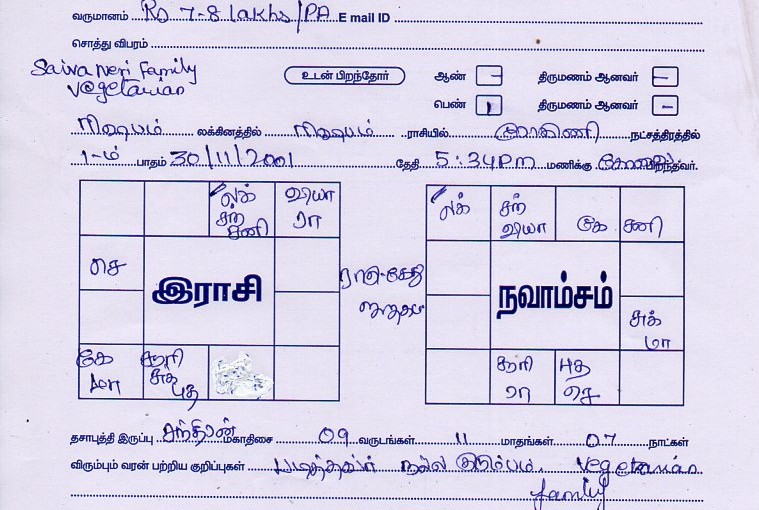 வருமானம் Rs 7-8 lakhs/PA E mail ID
சொத்து விபரம்
Saiva neri family
vegetarian
உடன் பிறந்தோர் ஆண் - திருமணம் ஆனவர் -
பெண் 1 திருமணம் ஆனவர் -
ரிஷபம் லக்கினத்தில் ரிஷபம் ராசியில் ரோகிணி நட்சத்திரத்தில்
1-ம் பாதம் 30/11/2001 தேதி 5:34pm மணிக்கு பிறந்தவர்.
லக் வியா
சந் ரா
சனி
செ
இராசி
கே சூரி
சுக்
புத
ராகு-கேது
லக் சந் கே சனி
வியா
நவாம்சம்
சுக்
மா
சூரி புத
ரா செ
தசாபுத்தி இருப்பு சந்திரன் மகாதிசை 09 வருடங்கள் 11 மாதங்கள் 07 நாட்கள்
விரும்பும் வரன் பற்றிய குறிப்புகள் படித்தவர் நல்ல குடும்பம். vegetarian
family